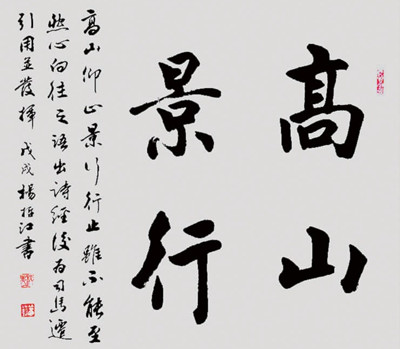 高山
景行
高山仰止景行行止雖不能至
然心向往之語出詩經後为司馬遷
引用並發揮 戊戌 楊 江書